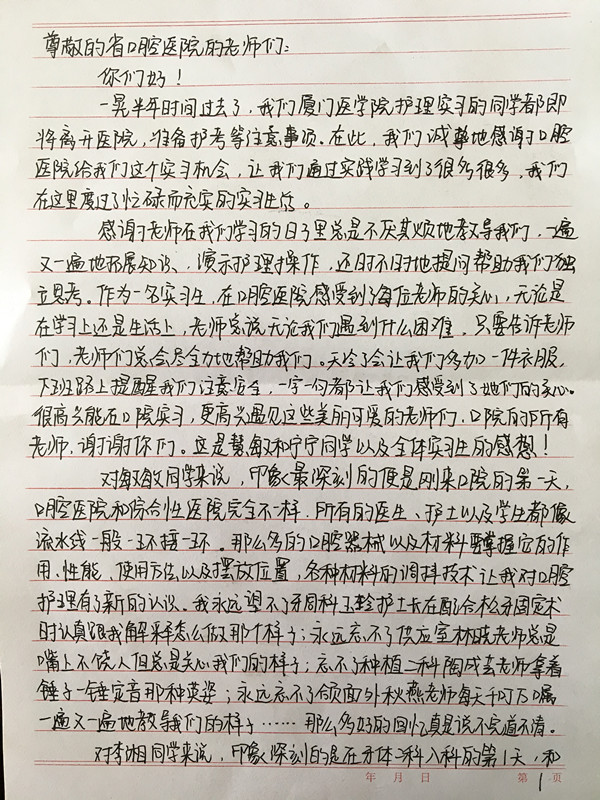 尊敬的省口腔医院的老师们：
你们好！
一晃半年时间过去了，我们厦门医学院护理实习的同学都即
将离开医院，准备护考等注意事项。在此，我们诚挚地感谢口腔
医院给我们这个实习机会，让我们通过实践学习到了很多很多，我们
在这里度过了忙碌而充实的实习生活。
感谢老师在我们学习的日子里总是不厌其烦地教导我们，一遍
又一遍地拓展知识、演示护理操作，还时不时地提问帮助我们独
立思考。作为一名实习生，在口腔医院感受到了每位老师的关心，无论是
在学习上还是生活上，老师总说无论我们遇到什么困难，只要告诉老师
们，老师们总会尽全力地帮助我们。天冷了会让我们多加一件衣服，
下班路上提醒我们注意安全，一字一句都让我们感受到了她们的关心。
很高兴能在口院实习，更高兴遇见这些美丽可爱的老师们，口院的所有
老师，谢谢你们。这是慧敏和宁宁同学以及全体实习生的感想！
对敏敏同学来说，印象最深刻的便是刚来口院的第一天，
口腔医院和综合性医院完全不一样，所有的医生、护士以及学生都像
流水线一般一环接一环。那么多的口腔器械以及材料要掌握它的作
用、性能、使用方法以及摆放位置，各种材料的调拌技术让我对口腔
护理有了新的认识。我永远忘不了牙周科玉珍护士长在配合松牙固定术
时认真跟我解释怎么做那个样子；永远忘不了供应室林晓老师总是
嘴上不饶人但总是关心我们的样子；忘不了种植二科陶成芸老师拿着
锤子一锤定音那种英姿；永远忘不了颌面外秋燕老师每天千叮万嘱
一遍又一遍地教导我们的样子……那么多好的回忆真是说不完道不清。
对李湘同学来说，印象深刻的是在牙体二科入科的第1天，和
年 月 日 第 1 页